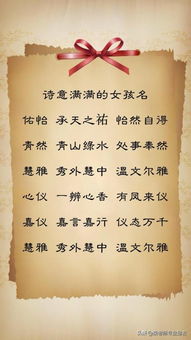 诗意满满的女孩名
佑怡 承天之祐 怡然自得
青然 青山绿水 处事泰然
慧雅 秀外慧中 温文尔雅
心仪 一瓣心香 有凤来仪
嘉仪 嘉言嘉行 仪态万千
慧雅 秀外慧中 温文尔雅